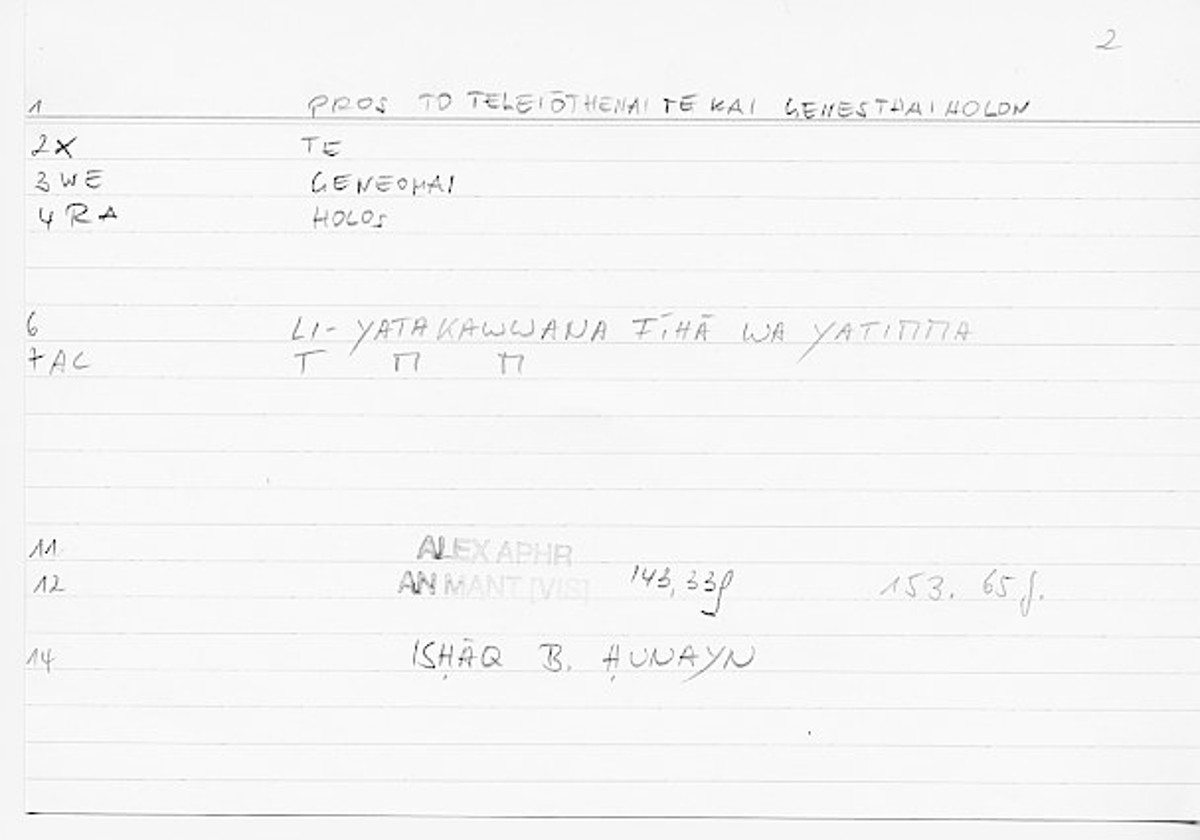 2
1 PROS TO TELEIŌTHENAI TE KAI GENESTHAI HOLON
2X TE
3 WE GENEOMAI
4 RA HOLOS
6 LI- YATAKAWWANA FĪHĀ WA YATIMMA
7 AC T M M
11 ALEX APHR
12 AN MANT [VIS] 143, 33f 153. 65 f.
14 ISḤĀQ B. ḤUNAYN